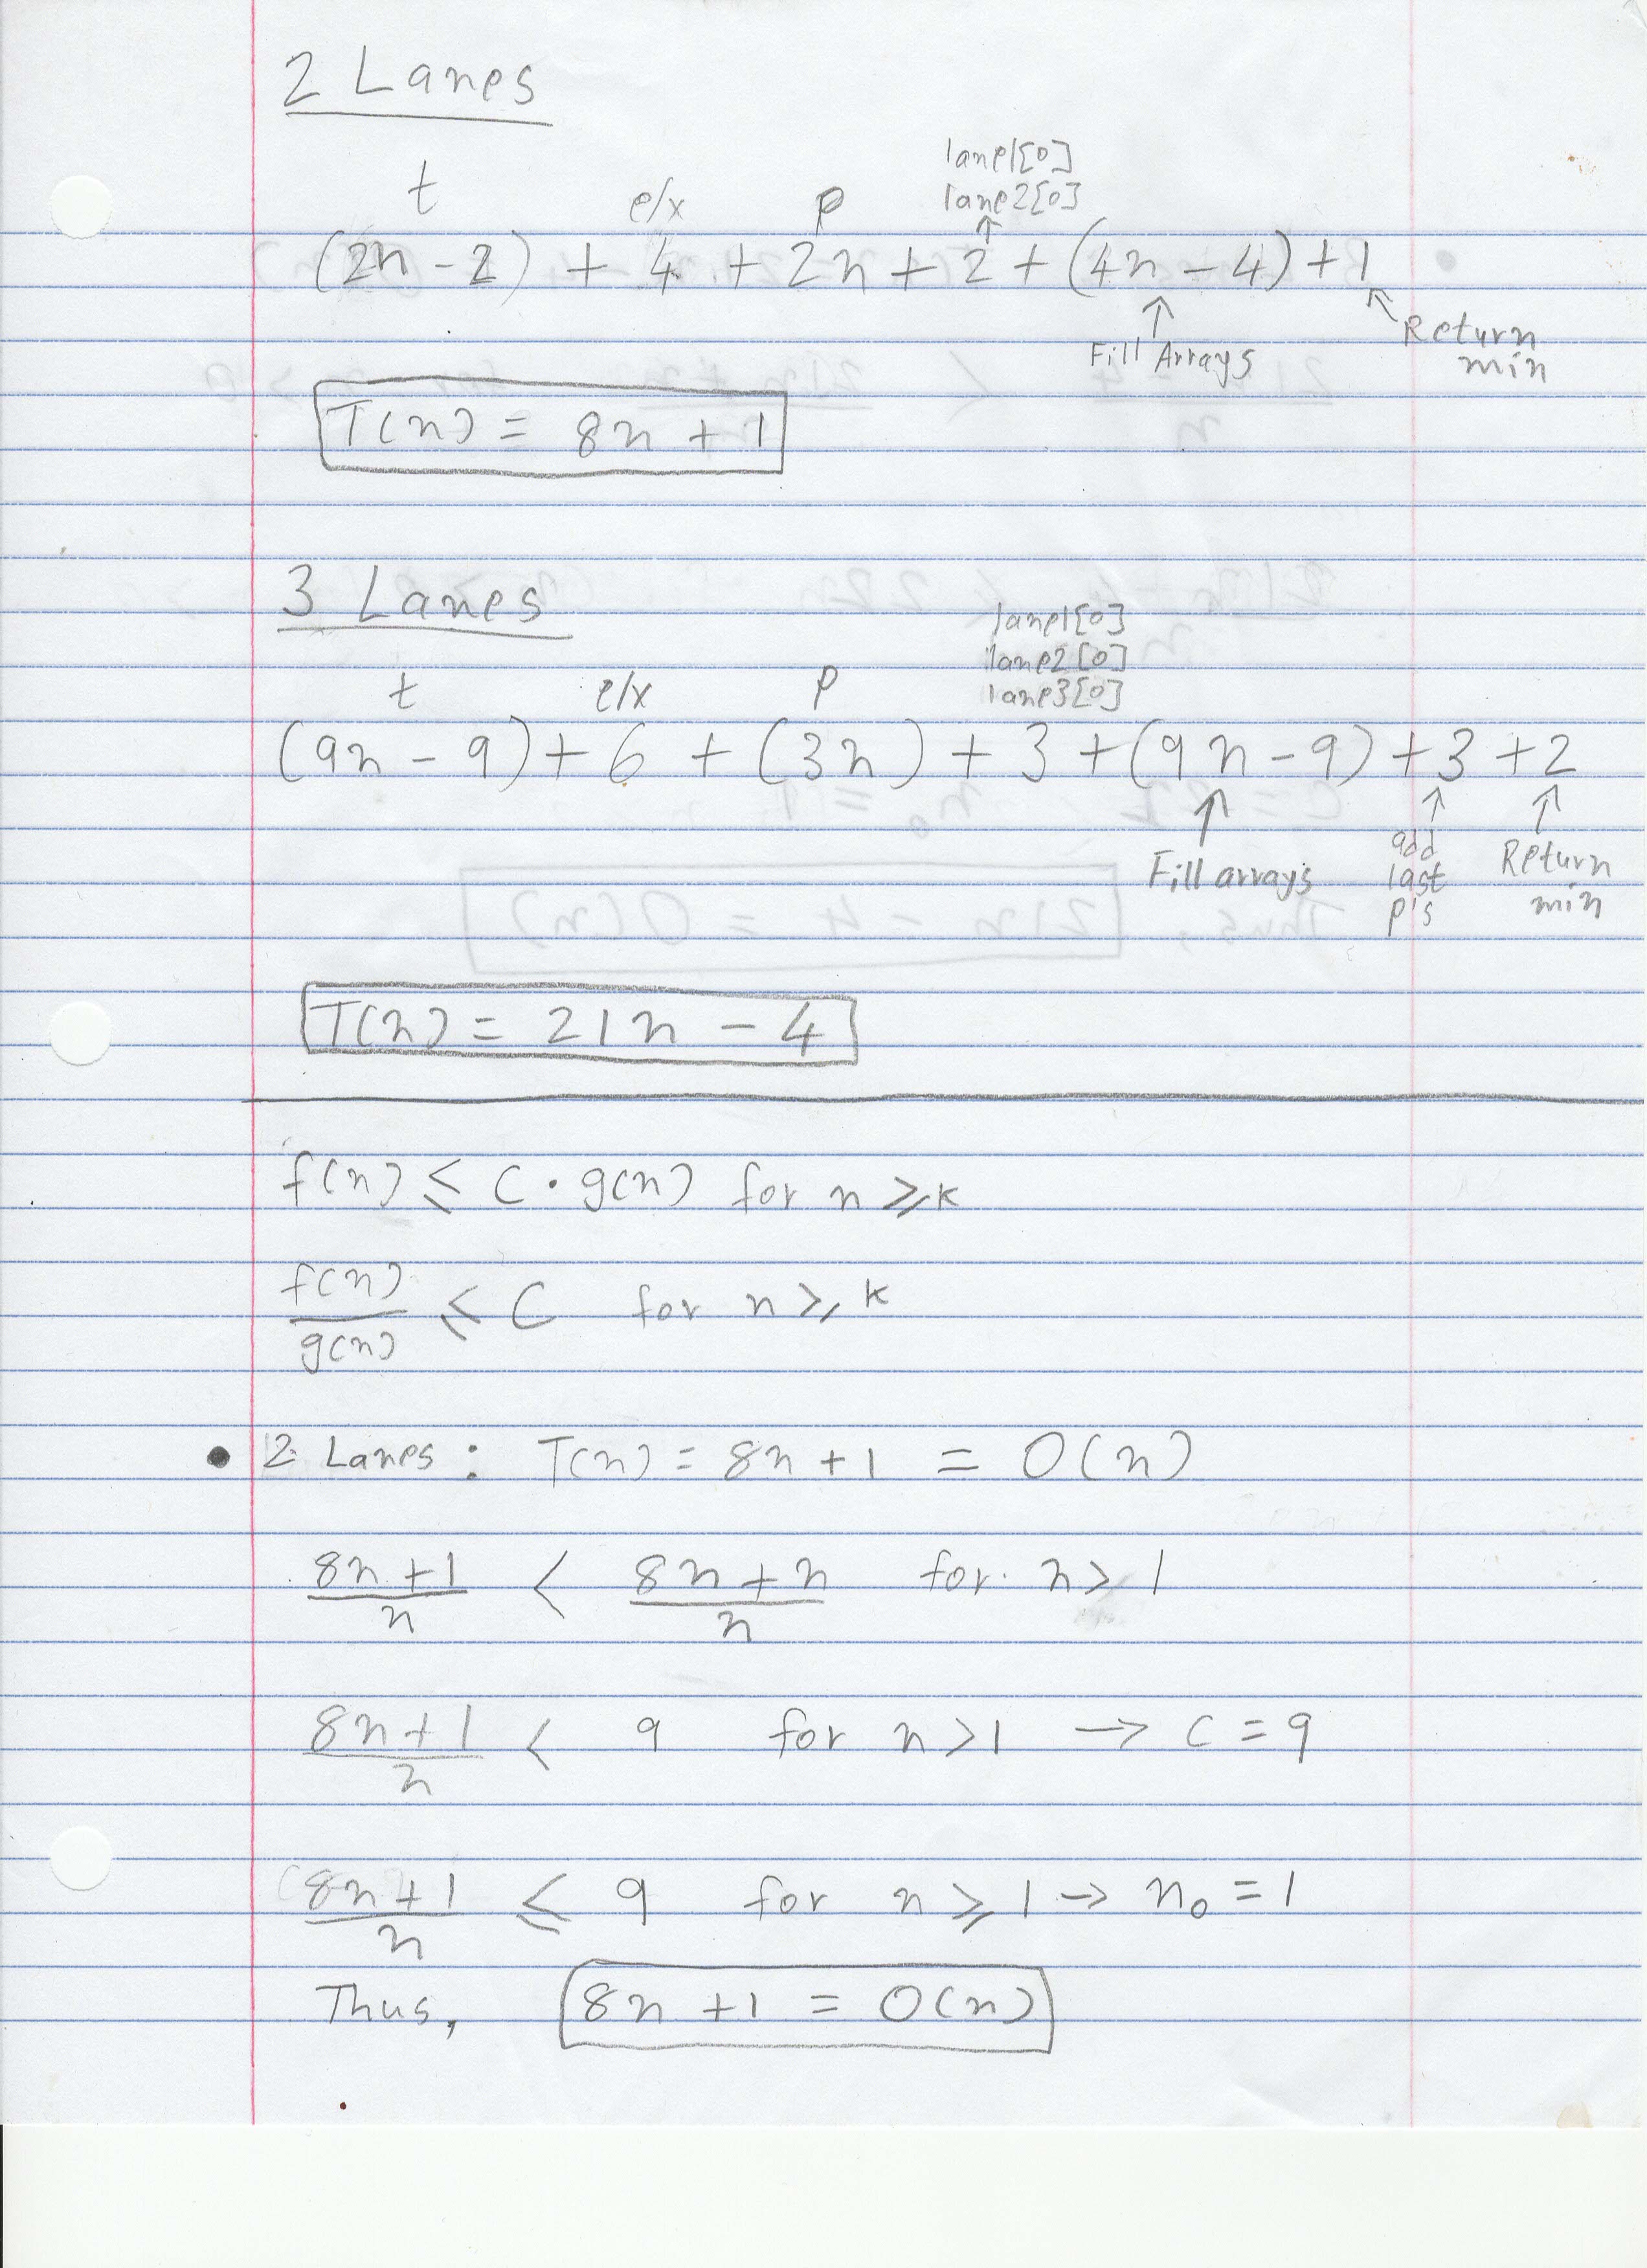 2 Lanes
lane1[0]
t e/x p lane2[0]
↑
(2n - 2) + 4 + 2n + 2 + (4n - 4) + 1
↑ ↖
Fill Arrays Return min
T(n) = 8n + 1
3 Lanes
lane1[0]
lane2[0]
t e/x p lane3[0]
(9n - 9) + 6 + (3n) + 3 + (9n - 9) + 3 + 2
↑ ↑ ↑
Fill arrays add last p's Return min
T(n) = 21n - 4
f(n) ≤ C · g(n) for n ≥ k
f(n)/g(n) ≤ C for n ≥ k
• 2 Lanes : T(n) = 8n + 1 = O(n)
(8n + 1)/n < (8n + n)/n for n > 1
(8n + 1)/n < 9 for n > 1 → C = 9
(8n + 1)/n ≤ 9 for n ≥ 1 → n₀ = 1
Thus, 8n + 1 = O(n)